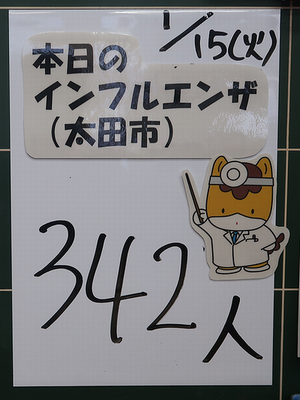 1/15(火)
本日の
インフルエンザ
(太田市)
342人